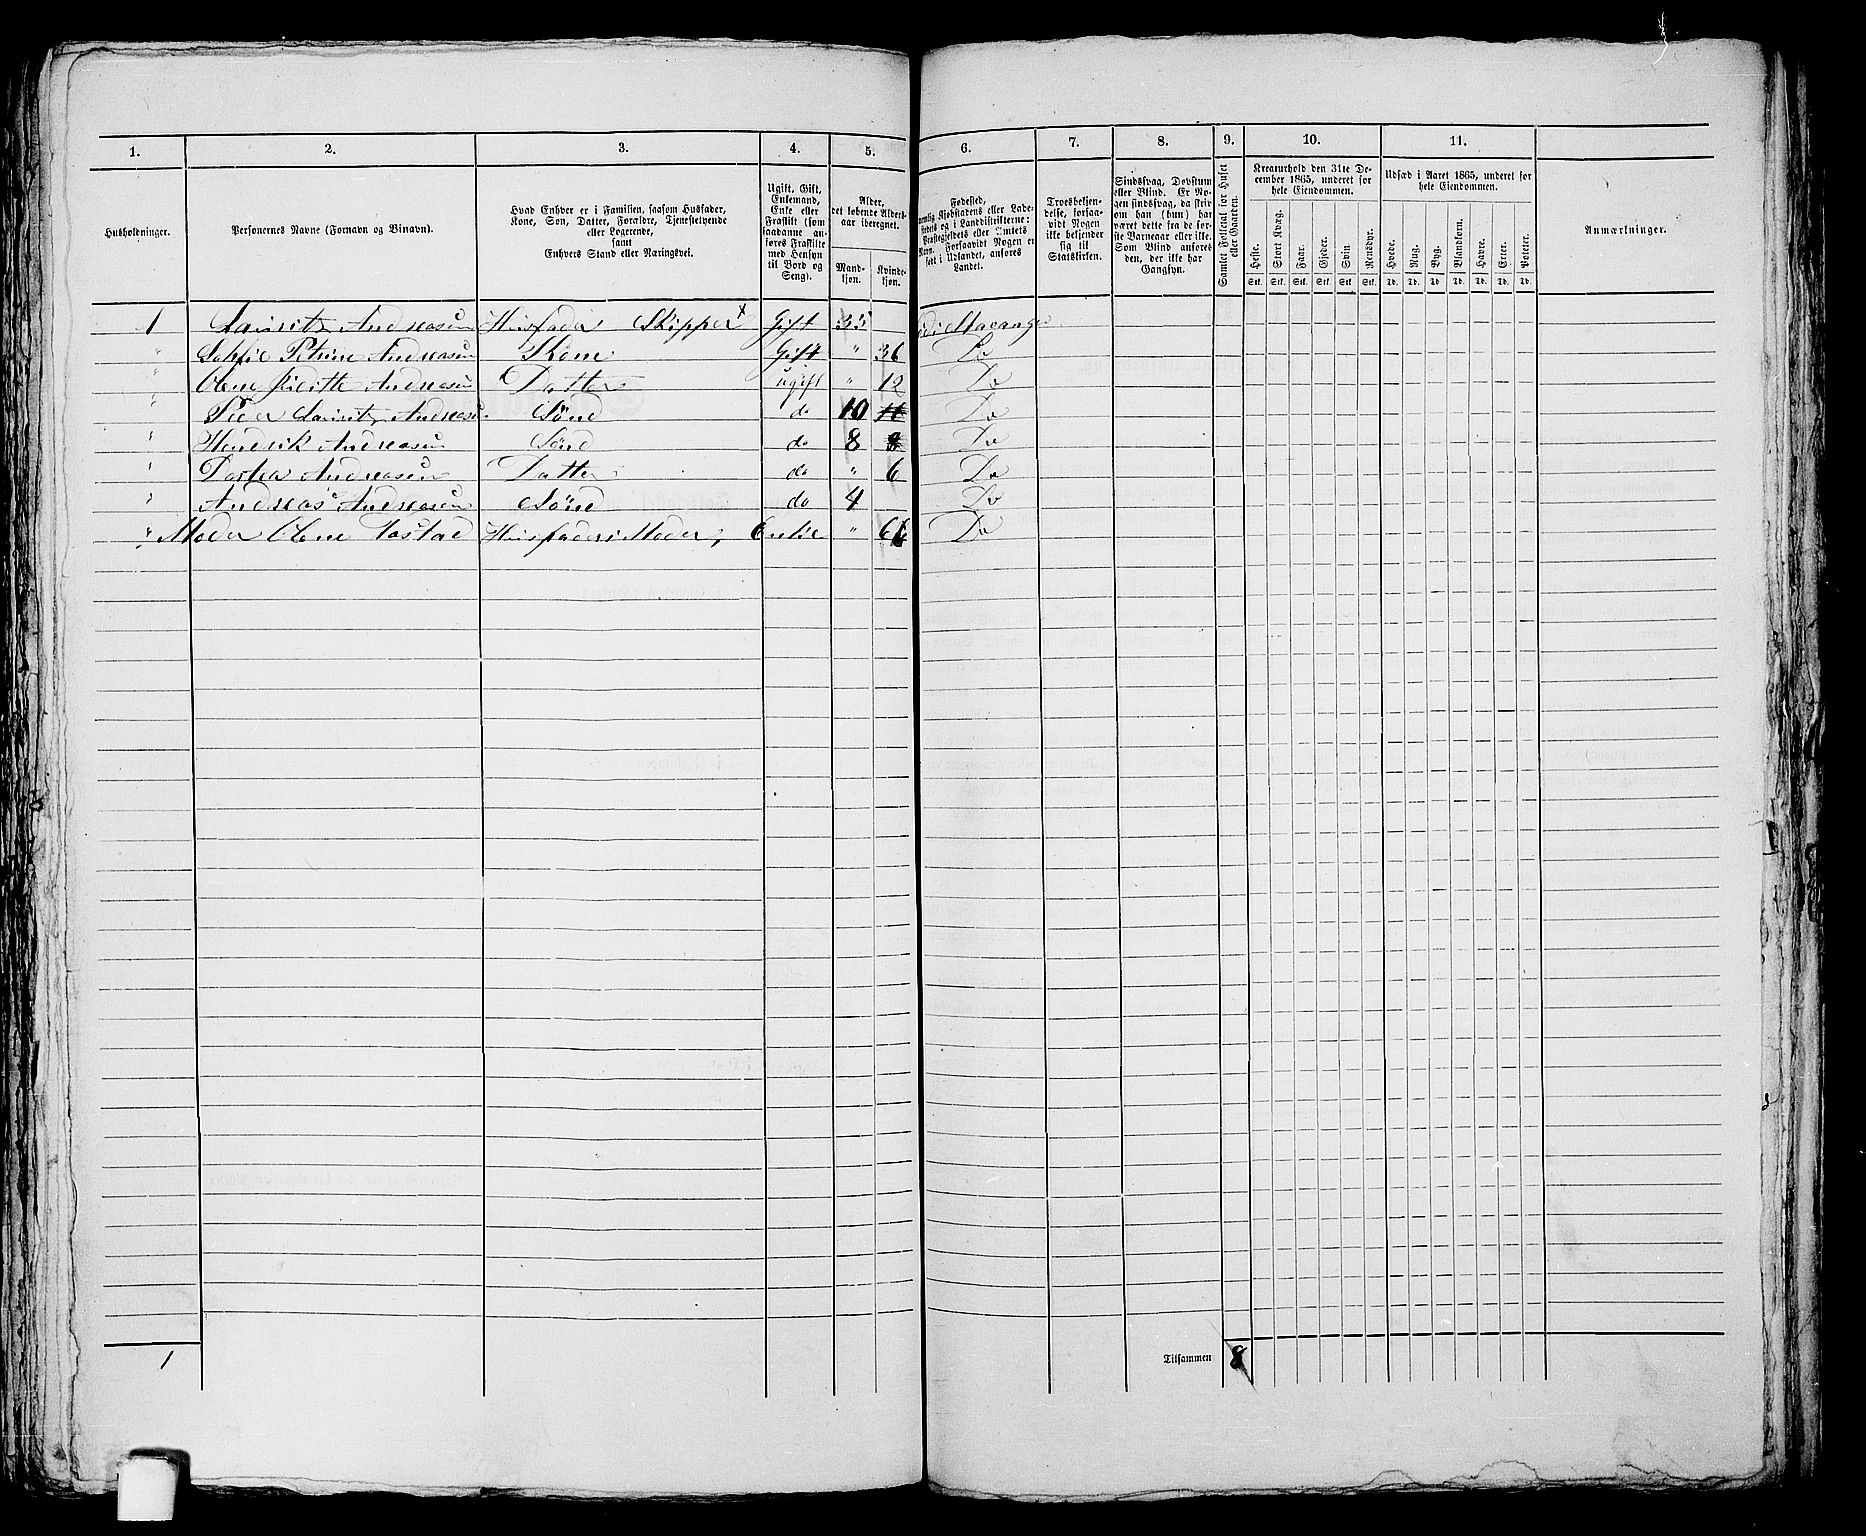 1. 2. 3. 4. 5. 6. 7. 8. 9. 10. 11.
Husholdninger.
Personernes Navne (Fornavn og Binavn).
Hvad Enhver er i Familien, saasom Husfader,
Kone, Søn, Datter, Forældre, Tjenestetyende
eller Logerende,
samt
Enhvers Stand eller Næringsvei.
Ugift, Gift,
Enkemand,
Enke eller
Fraskilt (som
saadanne an-
føres Fraskilte
med Hensyn
til Bord og
Seng).
Alder,
det løbende Alders-
aar iberegnet.
Mand-
kjøn.
Kvinde-
kjøn.
Fødested,
nemlig Kjøbstadens eller Lade-
stedets og i Landdistrikterne:
Præstegjeldets eller Amtets
Navn. Forsaavidt Nogen er
født i Udlandet, anføres
Landet.
Troesbekjen-
delse, forsaa-
vidt Nogen
ikke bekjender
sig til
Statskirken.
Sindssvag, Døvstum
eller Blind. Er No-
gen sindssvag, da skriv
om han (hun) har
været dette fra de før-
ste Barneaar eller ikke.
Som Blind anføres
den, der ikke har
Gangsyn.
Samlet Folketal for Huset
eller Gaarden.
Kreaturhold den 31te De-
cember 1865, underet for
hele Eiendommen.
Heste. Stort Kvæg. Faar. Gjeder. Svin Rensdyr.
Stk. Stk. Stk. Stk. Stk Stk.
Udsæd i Aaret 1865, underet for
hele Eiendommen.
Hvede. Rug. Byg. Blandkorn. Havre. Erter. Poteter.
Td. Td. Td Td. Td. Td. Td.
Anmærkninger.
1 Lauritz Andreasen Huusfader Skipper Gift 35
" Sophie Petrine Andreasen Kone Gift " 36 Do
" Olene Andreasen Datter ugift " 12 Do
" Peder Lauritz Andreasen Sønd do 10 11 Do
" Hendrik Andreasen Sønd do 8 8 Do
" Dortea Andreasen Datter do " 6 Do
" Andreas Andreasen Sønd do 4 Do
" Moder Olene Huusfaders Moder; Enke " Do
1 Tilsammen 8